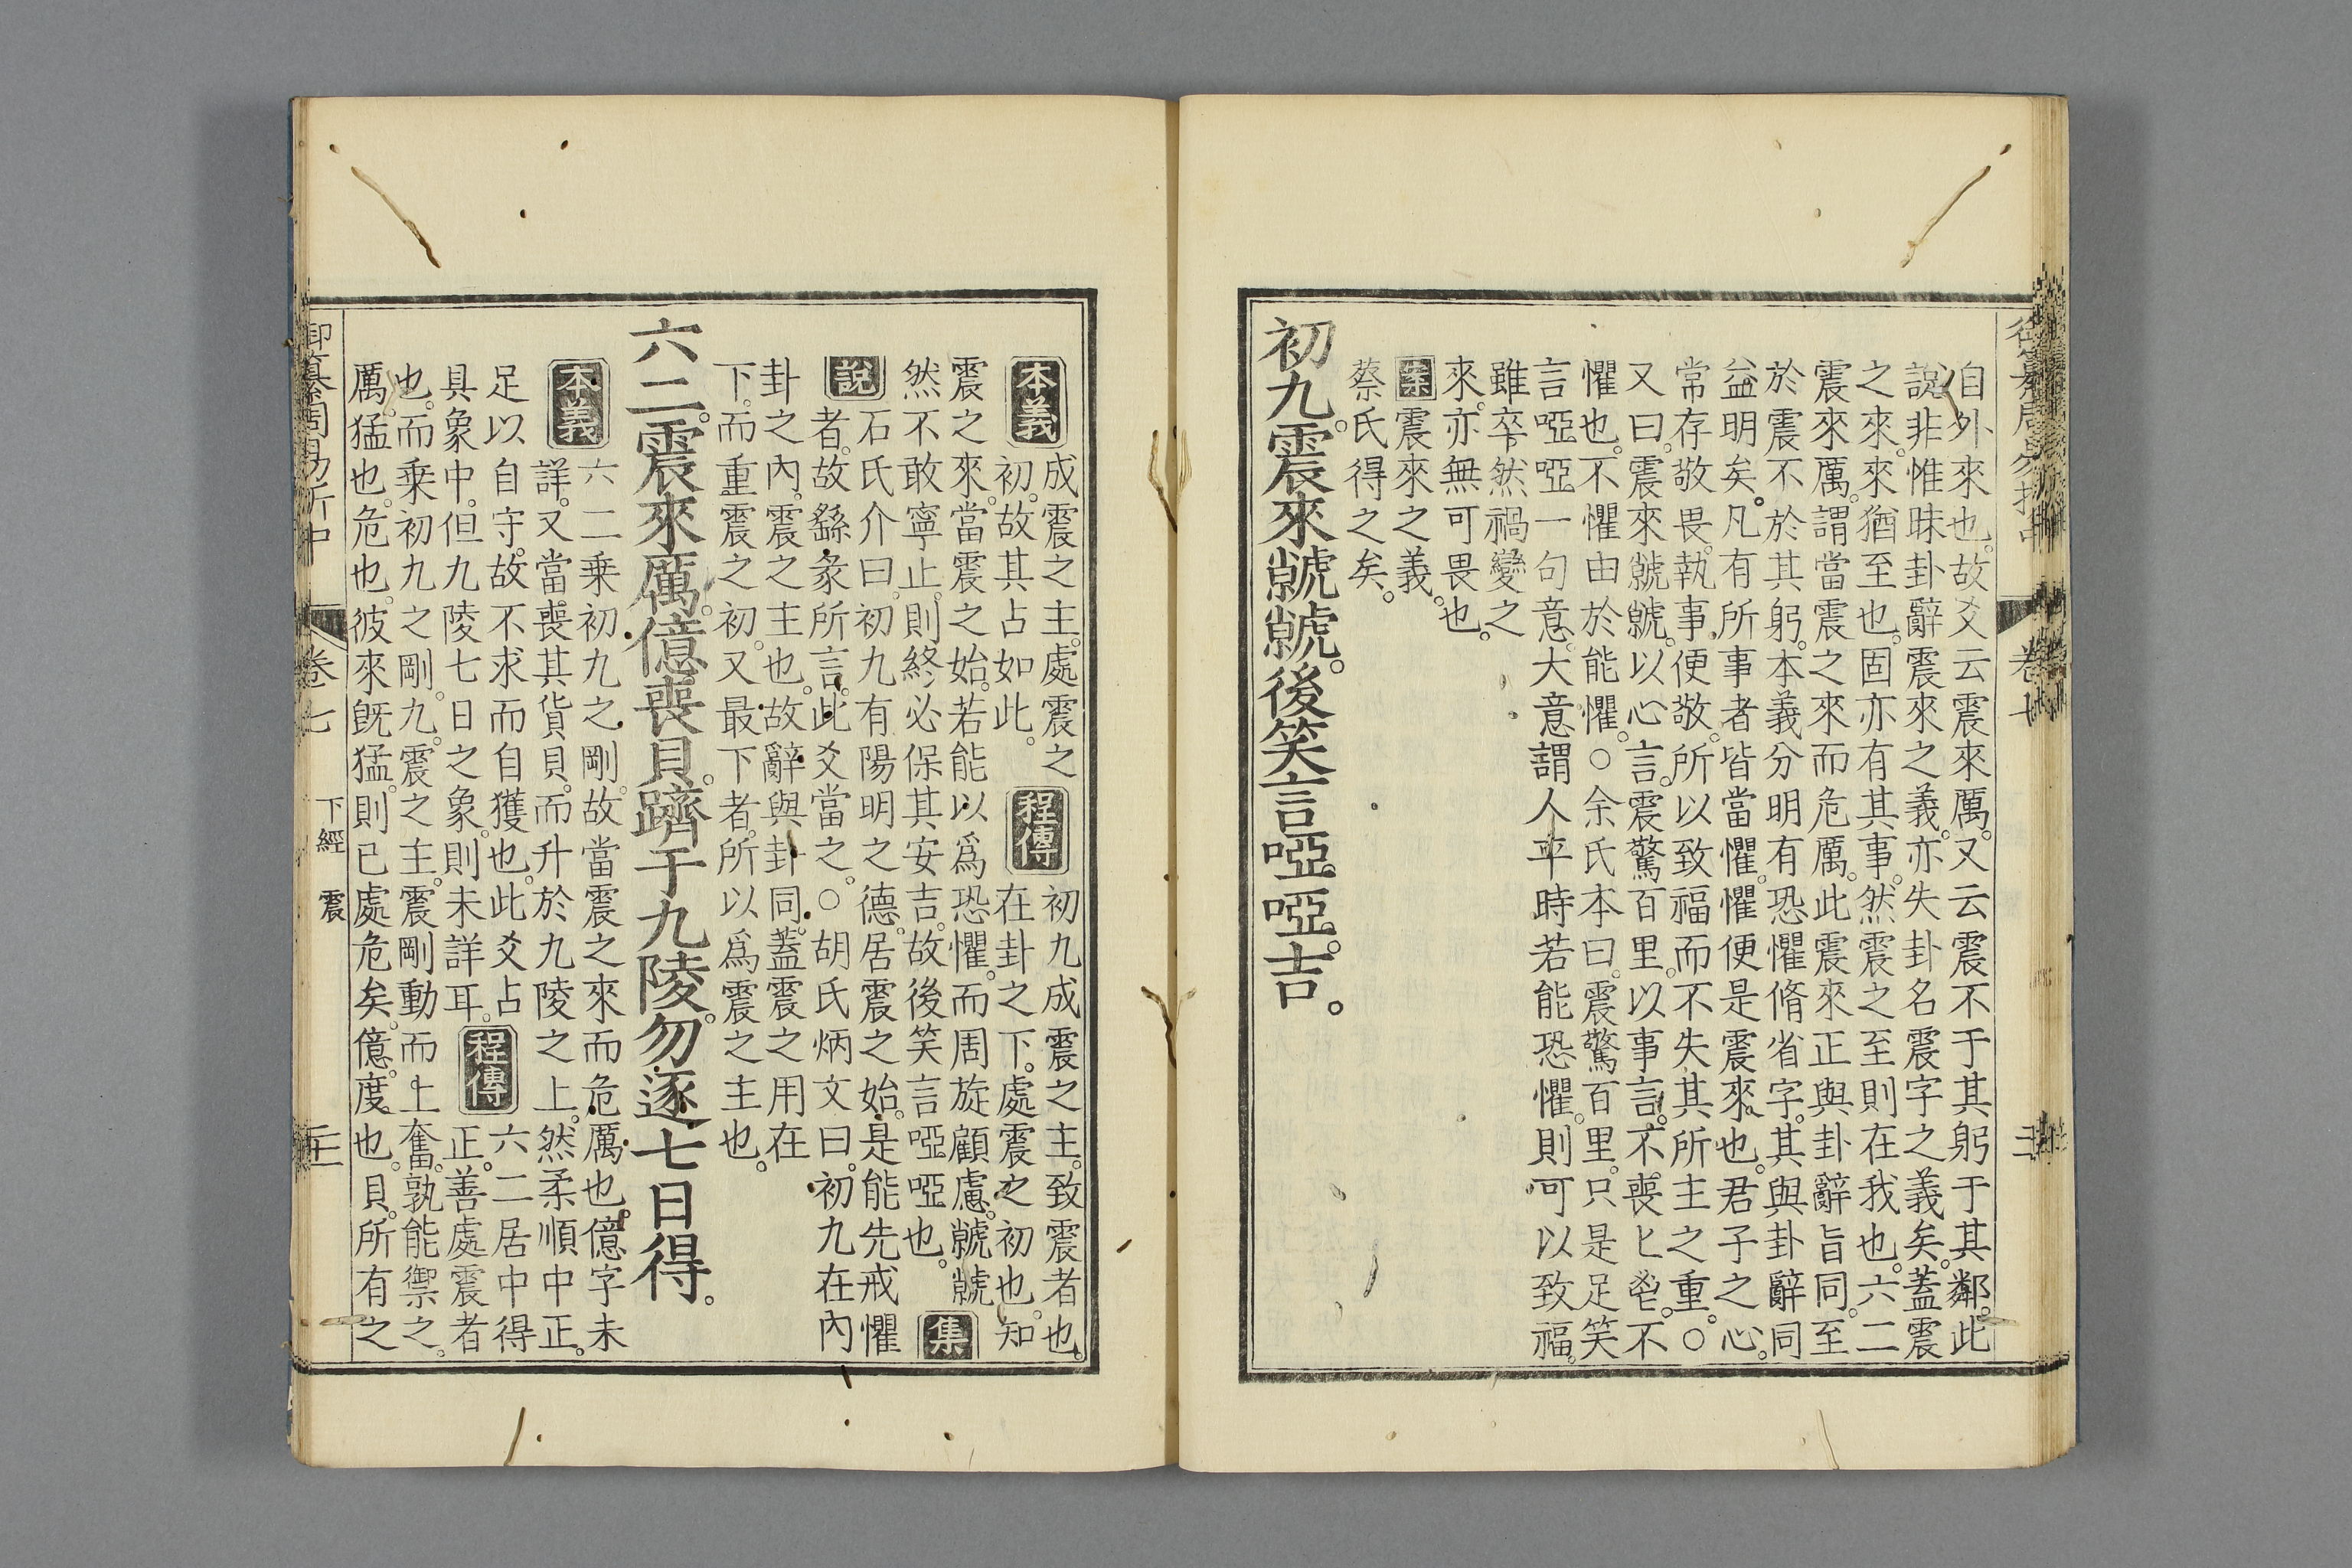 自外來也。故爻云震來厲。又云震不于其躬于其鄰。此
說非惟昧卦辭震來之義。亦失卦名震字之義矣。蓋震
之來。來猶至也。固亦有其事。然震之至則在我也。六二
震來厲。謂當震之來而危厲。此震來正與卦辭旨同。至
於震不於其躬。本義分明有恐懼脩省字。其與卦辭同
益明矣。凡有所事者皆當懼。懼便是震來也。君子之心。
常存敬畏。執事便敬。所以致福而不失其所主之重。○
又曰。震來虩虩。以心言。震驚百里。以事言。不喪匕鬯。不
懼也。不懼由於能懼。○余氏本曰。震驚百里。只是足笑
言啞啞一句意。大意謂人平時若能恐懼。則可以致福。
雖卒然禍變之
來。亦無可畏也。
案震來之義。
蔡氏得之矣。
初九。震來虩虩。後笑言啞啞。吉。
本義 成震之主。處震之
初。故其占如此。
程傳 初九成震之主。致震者也。
在卦之下。處震之初也。知
震之來。當震之始。若能以爲恐懼。而周旋顧慮。虩虩
然不敢寧止。則終必保其安吉。故後笑言啞啞也。 集
說 石氏介曰。初九有陽明之德。居震之始。是能先戒懼
者。故繇彖所言。此爻當之。○胡氏炳文曰。初九在內
卦之內。震之主也。故辭與卦同。蓋震之用在
下。而重震之初。又最下者。所以爲震之主也。
六二。震來厲。億喪貝。躋于九陵。勿逐七日得。
本義 六二乗初九之剛。故當震之來而危厲也。億字未
詳。又當喪其貨貝。而升於九陵之上。然柔順中正。
足以自守。故不求而自獲也。此爻占
具象中。但九陵七日之象。則未詳耳。
程傳 六二居中得
正。善處震者
也。而乗初九之剛。九。震之主。震剛動而上奮。孰能禦之。
厲。猛也。危也。彼來旣猛。則已處危矣。億。度也。貝。所有之
御纂周易折中 卷七 下經 震